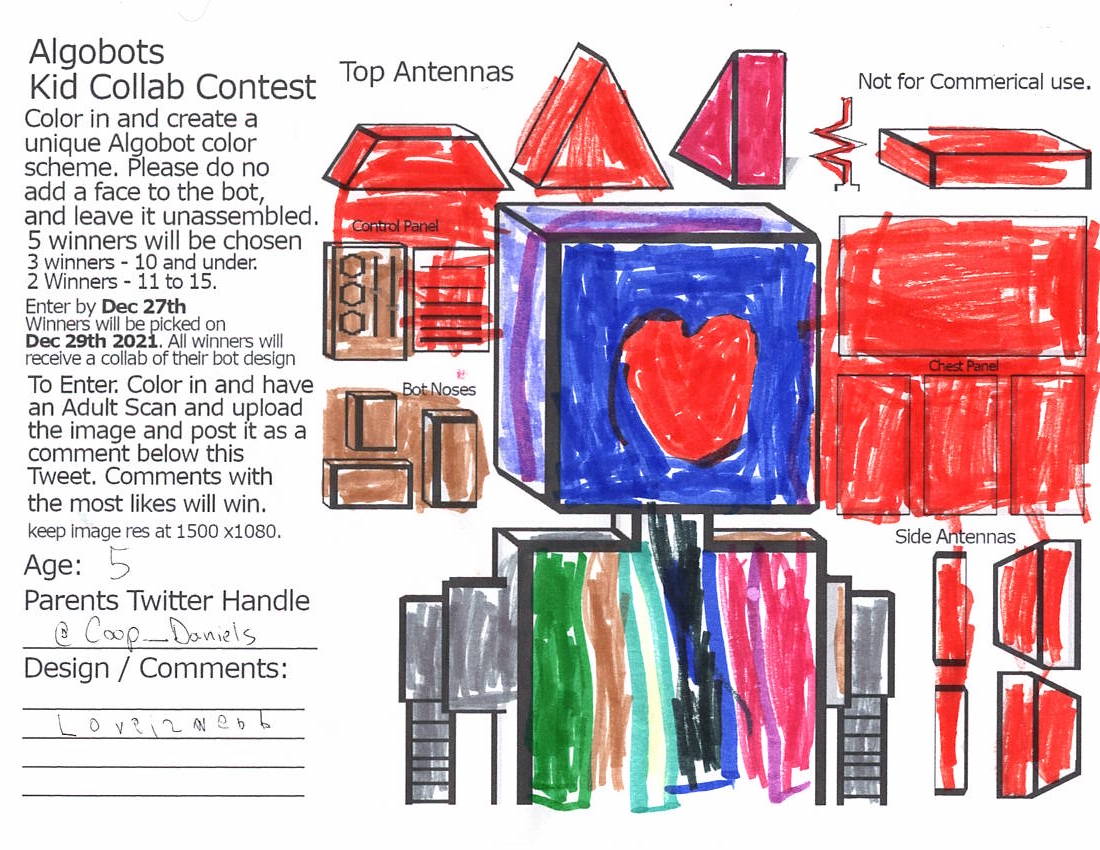 Algobots
Kid Collab Contest
Color in and create a
unique Algobot color
scheme. Please do no
add a face to the bot,
and leave it unassembled.
5 winners will be chosen
3 winners - 10 and under.
2 Winners - 11 to 15.
Enter by Dec 27th
Winners will be picked on
Dec 29th 2021. All winners will
receive a collab of their bot design
To Enter. Color in and have
an Adult Scan and upload
the image and post it as a
comment below this
Tweet. Comments with
the most likes will win.
keep image res at 1500 x1080.
Age: 5
Parents Twitter Handle
@Coop_Daniels
Design / Comments:
Top Antennas
Not for Commerical use.
Control Panel
Bot Noses
Chest Panel
Side Antennas